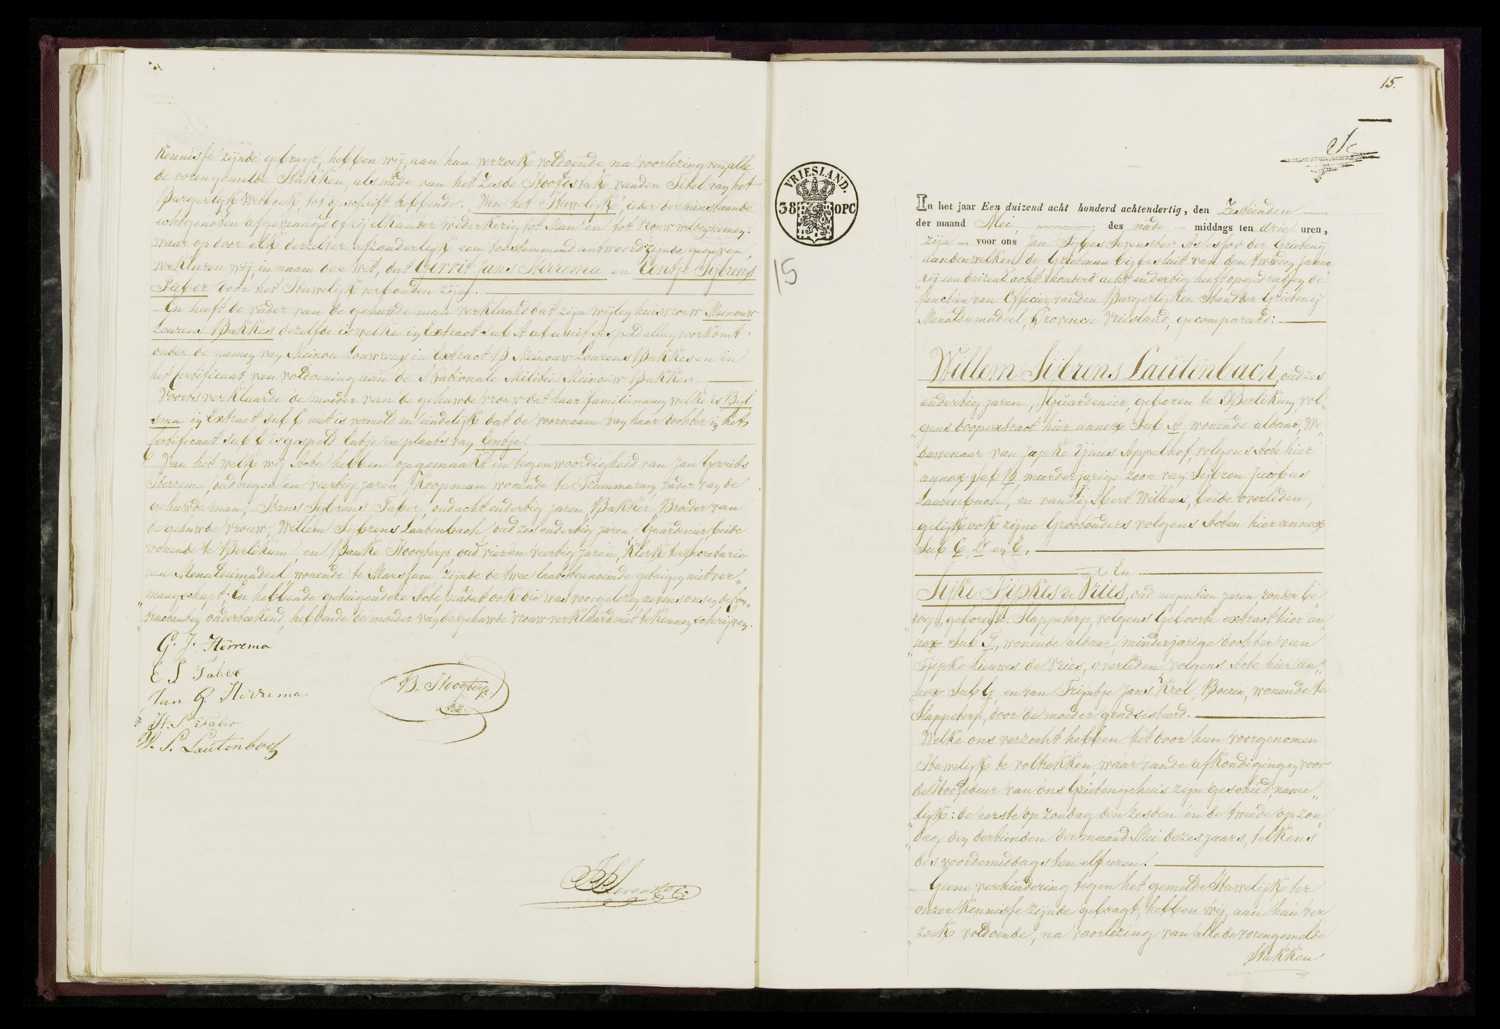 kennisse zijnde gebragt, hebben wij, aan hun verzoek voldoende, na voorlezing van alle
de vorengemelde Stukken, alsmede van het Zesde Hoofdstuk van den Titel van het
Burgerlijk Wetboek tot opschrift hebbende: Van het Huwelijk, ieder der aanstaande
echtgenooten afgevraagd of zij elkander wederkeerig tot Man en tot Vrouw wilden nemen:
waar op door elk derzelver afzonderlijk een toestemmend antwoord zijnde gegeven,
verklaren wij in naam der wet, dat Gerrit Jans Herrema en Eentje Sijbrens
Faber door het Huwelijk verbonden zijn.
En heeft de vader van de gehuwde man verklaard dat zijn wijlen huisvrouw Meinouw
Lourens Bakker dezelfde is welke in Extract
onder de namen van Meinou Louwrens in Extract B Meinouw Lourens Bakker en in
het certificaat van voldoening aan de Nationale Militie Meinouw Bakker.
Voorts verklaarde de moeder van de gehuwde vrouw dat haar familienaam welke is
in Extract sub C niet is vermeld en eindelijk dat de voornaam van haar dochter in het
certificaat sub E is gespeld in plaats van Eentje.
Van het welk wij Acte hebben opgemaakt in tegenwoordigheid van Jan Gerrits
Herrema, oud negen en veertig jaren, Koopman wonende te vader van de
gehuwde man, Sijbrens Faber, oud acht en dertig jaren, Bakker, Broeder van
de gehuwde vrouw, Willem Sijbrens Lautenbach, oud zes en dertig jaren, Gardenier, beide
wonende te Berlikum, en Bauke Hoogterp oud vier en veertig jaren, Klerk ter Secretarie
van Menaldumadeel, wonende te Marssum, zijnde de twee laatstgenoemde getuigen niet ver-
maagschapt: En hebbende getuigen deze Acte nadat ook die was voorgelezen nevens ons en de
onderteekend, hebbende de moeder van de gehuwde vrouw verklaard niet te kunnen schrijven.
G. J. Herrema
E S Faber
Jan G Herrema
H. S. Faber
W. S. Lautenbach
B. Hoogterp
15.
VRIESLAND.
38 OPC
15
In het jaar Een duizend acht honderd achtendertig, den Zestienden
der maand Mei, des nade middags ten drie uren,
zijn voor ons Jan Assessor der Grietenij
aan den welken de Grietman bij besluit van den tweden Januarij
een duizend acht honderd acht en dertig heeft opgedragen de
functien van Officier van den Burgerlijken Stand der Grietenij
Menaldumadeel, Provincie Vriesland, gecompareerd:
Willem Sijbrens Lautenbach, oud zes
en dertig jaren, Gardenier, geboren te Berlikum, vol-
gens doopextract hier annex sub A, wonende aldaar, We-
duwenaar van Japke Tjums Appelhof, volgens Acte hier
annex sub B, meerderjarige zoon van Sijbren Jacobus
Lautenbach, en van Lijsbert Willems, beide overleden,
gelijk ook zijne Grootouders volgens Acten hier annex
sub C, D en E.
En
Sijke Sipkes de Vries, oud negentien jaren zonder be-
roep, geboren te Slappeterp, volgens Geboorte extract hier an-
nex sub F, wonende aldaar, minderjarige dochter van
Sijpke Lieuwes de Vries, overleden, volgens Acte hier an-
nex sub G, en van Trijntje Jans Krol, Boerin, wonende te
Slappeterp, door de moeder geadsisteerd.
Welke ons verzocht hebben tot door hun voorgenomen
Huwelijk te voltrekken, waar van de afkondigingen voor
de Hoofddeur van ons Grietenijhuis zijn geschied, name-
lijk: de eerste op Zondag den zesden en de tweede op Zon-
dag den dertienden der maand Mei dezes jaars, telkens
des voordemiddags ten elf uren.
Geene verhindering tegen het gemelde Huwelijk ter
onzer kennisse zijnde gebragt, hebben wij, aan hun ver-
zoek voldoende, na voorlezing van alle de vorengemelde
Stukken